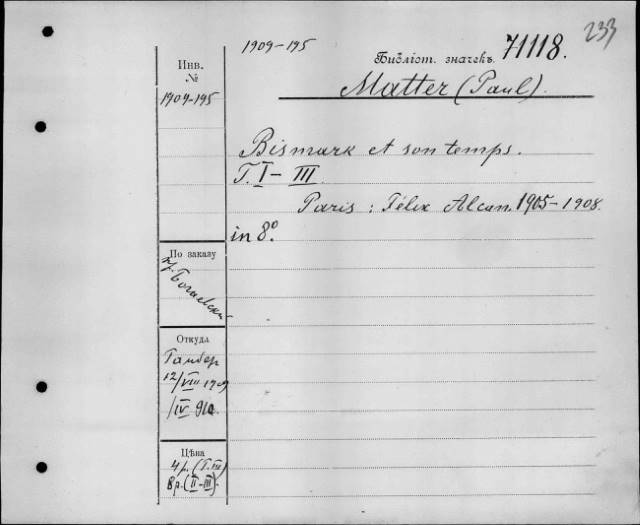 233
1909-195
Библіот. значекъ 71118.
Инв.
№
1909-195
Matter (Paul).
Bismark et son temps.
T. I - III
Paris : Félix Alcan. 1905-1908.
in 8º
По заказу
Откуда
12/VIII 1909
/IV 910
Цѣна
4 р. (T. III)
8 р. (II-III)